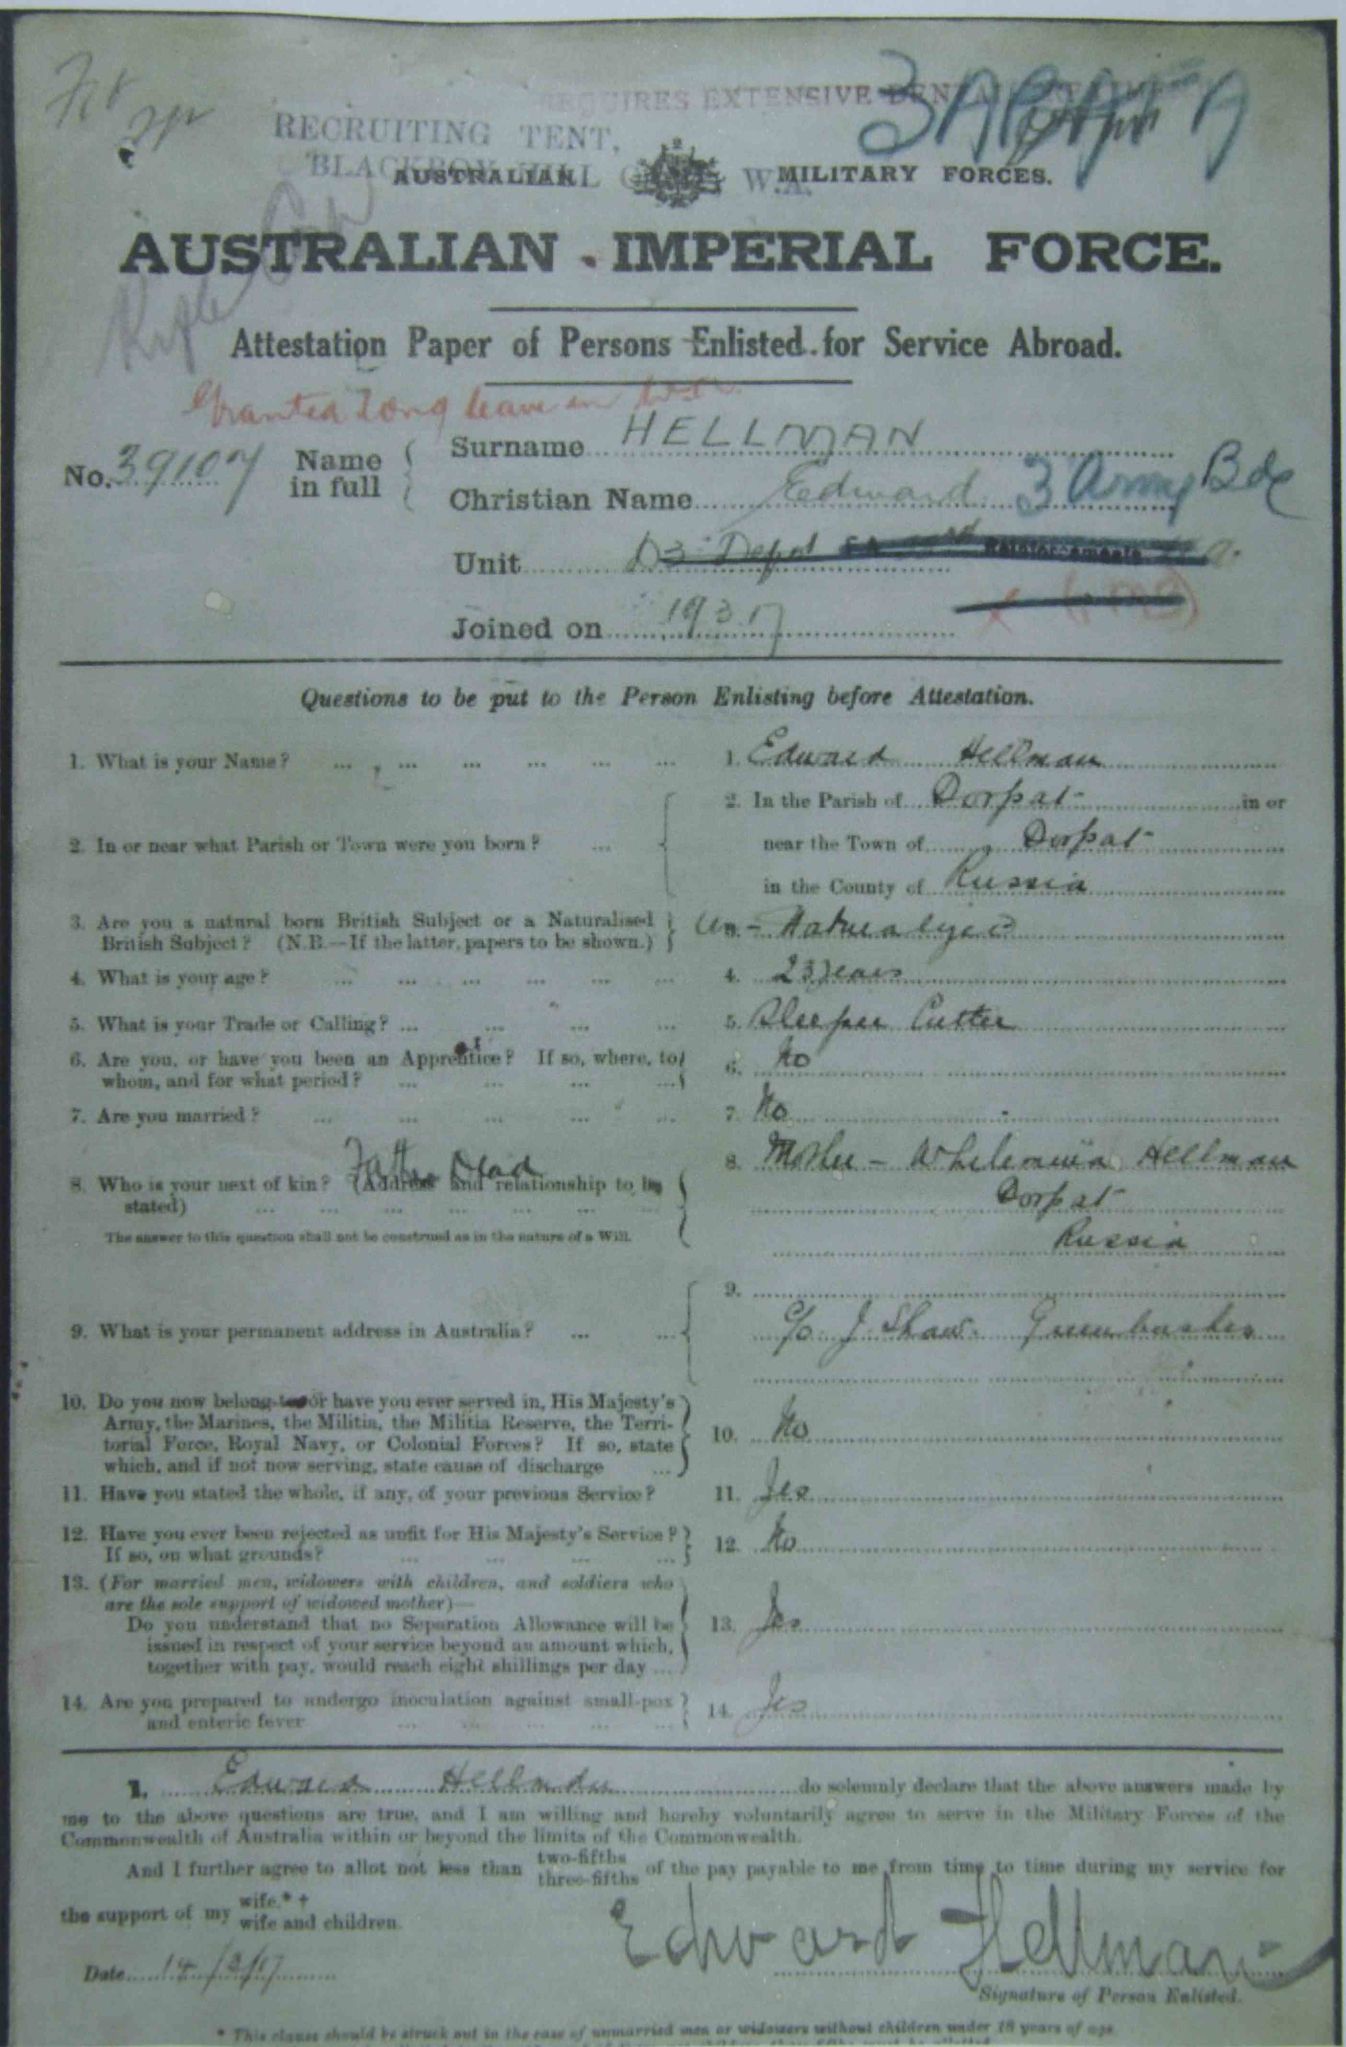 REQUIRES EXTENSIVE DENTAL TREATMENT
RECRUITING TENT,
BLACKBOY HILL W.A.
AUSTRALIAN MILITARY FORCES.
AUSTRALIAN IMPERIAL FORCE.
Rifle
Attestation Paper of Persons Enlisted for Service Abroad.
Granted Long leave in
No. 39107 Name in full
Surname HELLMAN
Christian Name Edward 3 Army Bde
Unit D3 Depot Reinforcements
Joined on 19 3 17
Questions to be put to the Person Enlisting before Attestation.
1. What is your Name? ... 1. Edward Hellman
2. In or near what Parish or Town were you born? ... 2. In the Parish of Dorpat in or
near the Town of Dorpat
in the County of Russia
3. Are you a natural born British Subject or a Naturalised 3. Un-Naturalized
British Subject? (N.B.—If the latter, papers to be shown.)
4. What is your age? ... 4. 23 years
5. What is your Trade or Calling? ... 5. Sleeper Cutter
6. Are you, or have you been an Apprentice? If so, where, to 6. No
whom, and for what period? ...
7. Are you married? ... 7. No
Father Dead
8. Who is your next of kin? (Address and relationship to be 8. Mother - Whilemina Hellman
stated) ... Dorpat
The answer to this question shall not be construed as in the nature of a Will. Russia
9.
9. What is your permanent address in Australia? ... c/o J Shaw. Greenbushes
10. Do you now belong to or have you ever served in, His Majesty's
Army, the Marines, the Militia, the Militia Reserve, the Terri-
torial Force, Royal Navy, or Colonial Forces? If so, state 10. No
which, and if not now serving, state cause of discharge ...
11. Have you stated the whole, if any, of your previous Service? 11. Yes
12. Have you ever been rejected as unfit for His Majesty's Service? 12. No
If so, on what grounds? ...
13. (For married men, widowers with children, and soldiers who
are the sole support of widowed mother)—
Do you understand that no Separation Allowance will be 13. Yes
issued in respect of your service beyond an amount which,
together with pay, would reach eight shillings per day ...
14. Are you prepared to undergo inoculation against small-pox 14. Yes
and enteric fever ...
I, Edward Hellman do solemnly declare that the above answers made by
me to the above questions are true, and I am willing and hereby voluntarily agree to serve in the Military Forces of the
Commonwealth of Australia within or beyond the limits of the Commonwealth.
And I further agree to allot not less than two-fifths three-fifths of the pay payable to me from time to time during my service for
the support of my wife.*† wife and children.
Edward Hellman
Date 14/3/17
Signature of Person Enlisted.
* This clause should be struck out in the case of unmarried men or widowers without children under 18 years of age.